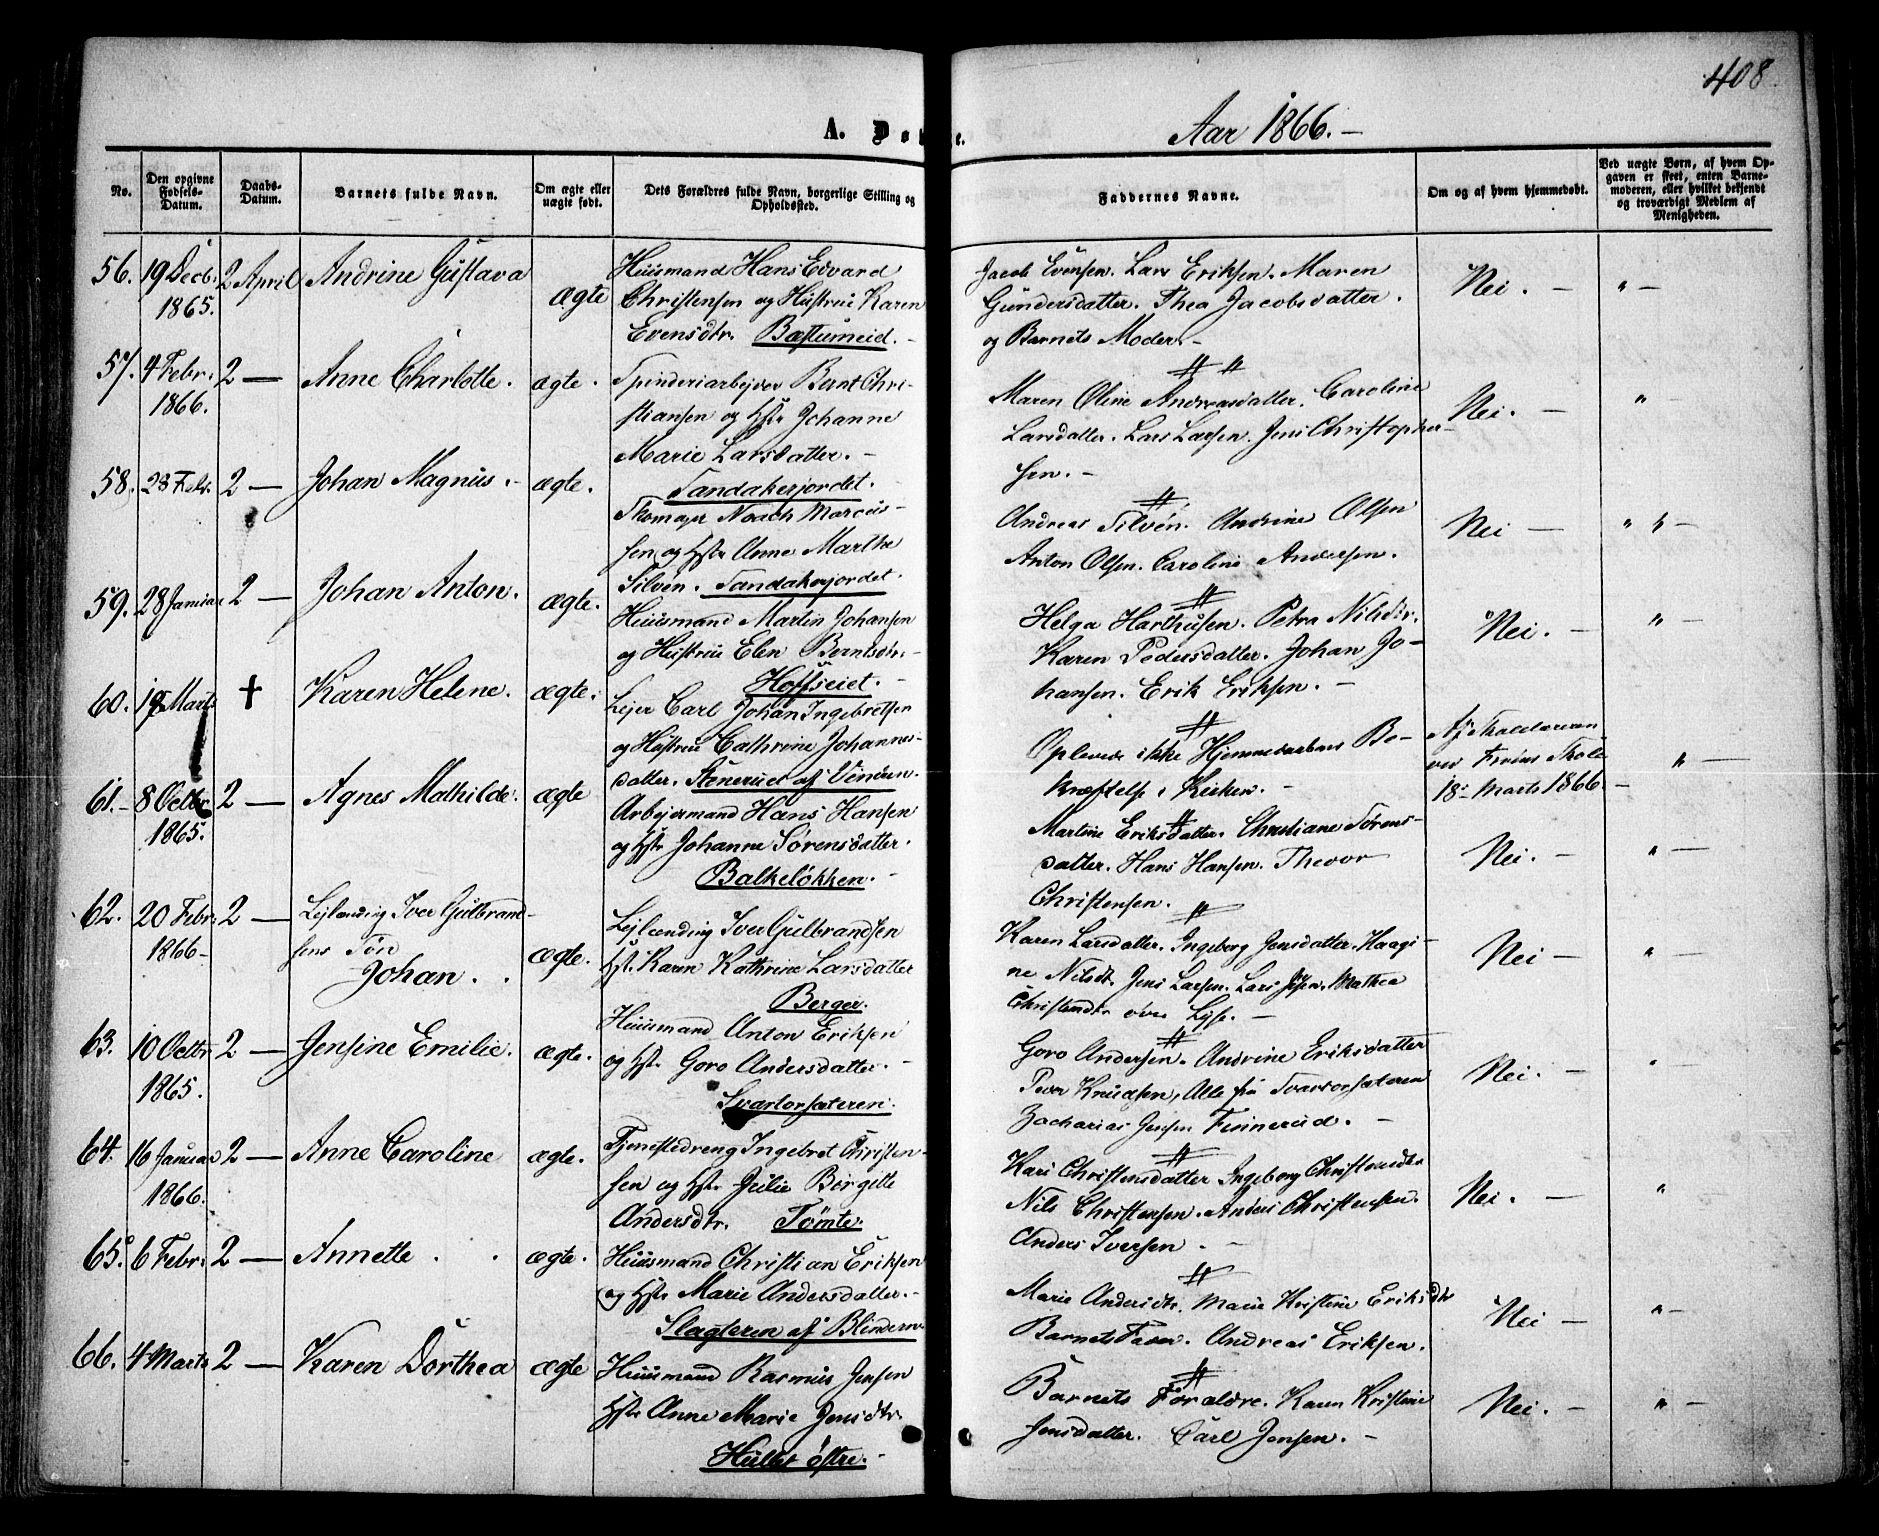 408.
A. Døb
e.
Aar 1866. –
No.
Den opgivne Fødsels-Datum.
Daabs-Datum.
Barnets fulde Navn.
Om ægte eller uægte født.
Dets Forældres fulde Navn, borgerlige Stilling og Opholdssted.
Faddernes Navne.
Om og af hvem hjemmedøbt.
Ved uægte Børn, af hvem Opgaven er skeet, enten Barnemoderen, eller hvilket bekjendt og troværdigt Medlem af Menigheden.
56. 19 Decb. 1865. 2 April Andrine Gustava ægte
Huusmand Hans Edvard
Christensen og Hustrue Karen
Evensdtr. Bæstumeid. –
Jacob Evensen. Lars Eriksen. Maren
Gundersdatter. Thea Jacobsdatter.
og Barnets Moder. –
Nei. – " –
57. 4 Febr. 1866. 2 — Anne Charlotte. ægte.
Spinderiarbejder Bernt Chri-
stiansen og Hstr Johanne
Marie Larsdatter. –
Sandakerjordet. –
Maren Oline Andreasdatter. Caroline
Larsdatter. Lars Larsen. Jens Christopher-
sen. –
Nei. – " –
58. 23 Febr. 2 — Johan Magnus. – ægte.
Skomager Noach Marcus-
sen og Hstr Anne Marthe
Silvén. Sandakerjordet.
Andreas Silvén. Andrine Olsen
Anton Olsen. Caroline Andersen.
Nei – " –
59. 28 Januar 2 — Johan Anton. ægte.
Huusmand Martin Johansen
og Hustrue Elen Berntsdtr. –
Hoffseiet. –
Helga Harthusen. Petra Nilsdtr.
Karen Pedersdatter. Johan Jo-
hansen. Erik Eriksen. –
Nei. – " –
60. Marts † Karen Helene. ægte.
Lejer Carl Johan Ingebretsen
og Hustrue Cathrine Johannes-
datter. Stenerud af Vindern.
Oplevede ikke Hjemmedaabens Be-
kræftelse i Kirken. –
Af Skolelæreren
ved Skole
18de Marts 1866. –
" –
61. – 8 Octbr 1865. 2 — Agnes Mathilde. ægte
Arbejdermand Hans Hansen
og Hstr Johanne Sørensdatter.
Balkeløkken. –
Martine Eriksdatter. Christiane Sørens-
datter. Hans Hansen. Thevor
Christensen.
Nei. – " –
62. 20 Febr. 1866 – 2 — Lejlænding Iver Gulbrand-
sens Søn
Johan. . ægte.
Lejlænding Iver Gulbrandsen
Hstr. Karen Kathrine Larsdatter
Berger.
Karen Larsdatter. Ingeborg Jensdatter. Haagi-
ne Nilsdtr. Jens Larsen. Lars Mathea
Christensdtr øvre Lyse. –
Nei – " –
63. 10 Octbr 1865. 2 — Jensine Emilie. ægte.
Huusmand Anton Eriksen
og Hstr Goro Andersdatter. –
Svartorsæteren.
Goro Andersen. Andrine Eriksdatter
Peder Knudsen, Alle fra Svartorsæteren
Zacharias Jensen Finnerud. –
Nei. – "
64. 16 Januar 1866. 2 — Anne Caroline ægte.
Tjenestedreng Ingebret Christen-
sen og Hstr Julie Birgitte
Andersdtr. Tømte.
Kari Christensdatter Ingeborg Christensdtr
Nils Christensen. Anders Christensen.
Anders Iversen –
Nei. – "
65. 6 Febr. 2 — Annette . . ægte.
Huusmand Christian Eriksen
og Hstr Marie Andersdatter. –
Slagteren af Blindern.
Marie Andersdtr. Marie Kristine Eriksdtr
Barnets Fader. Andreas Eriksen.
Nei – " –
66. 4 Marts 2 — Karen Dorthea ægte
Huusmand Rasmus Jensen
Hstr Anne Marie Jensdtr.
Hullet østre. –
Barnets Forældre. Karen Kristine
Jensdatter. Carl Jensen. –
Nei. – " –